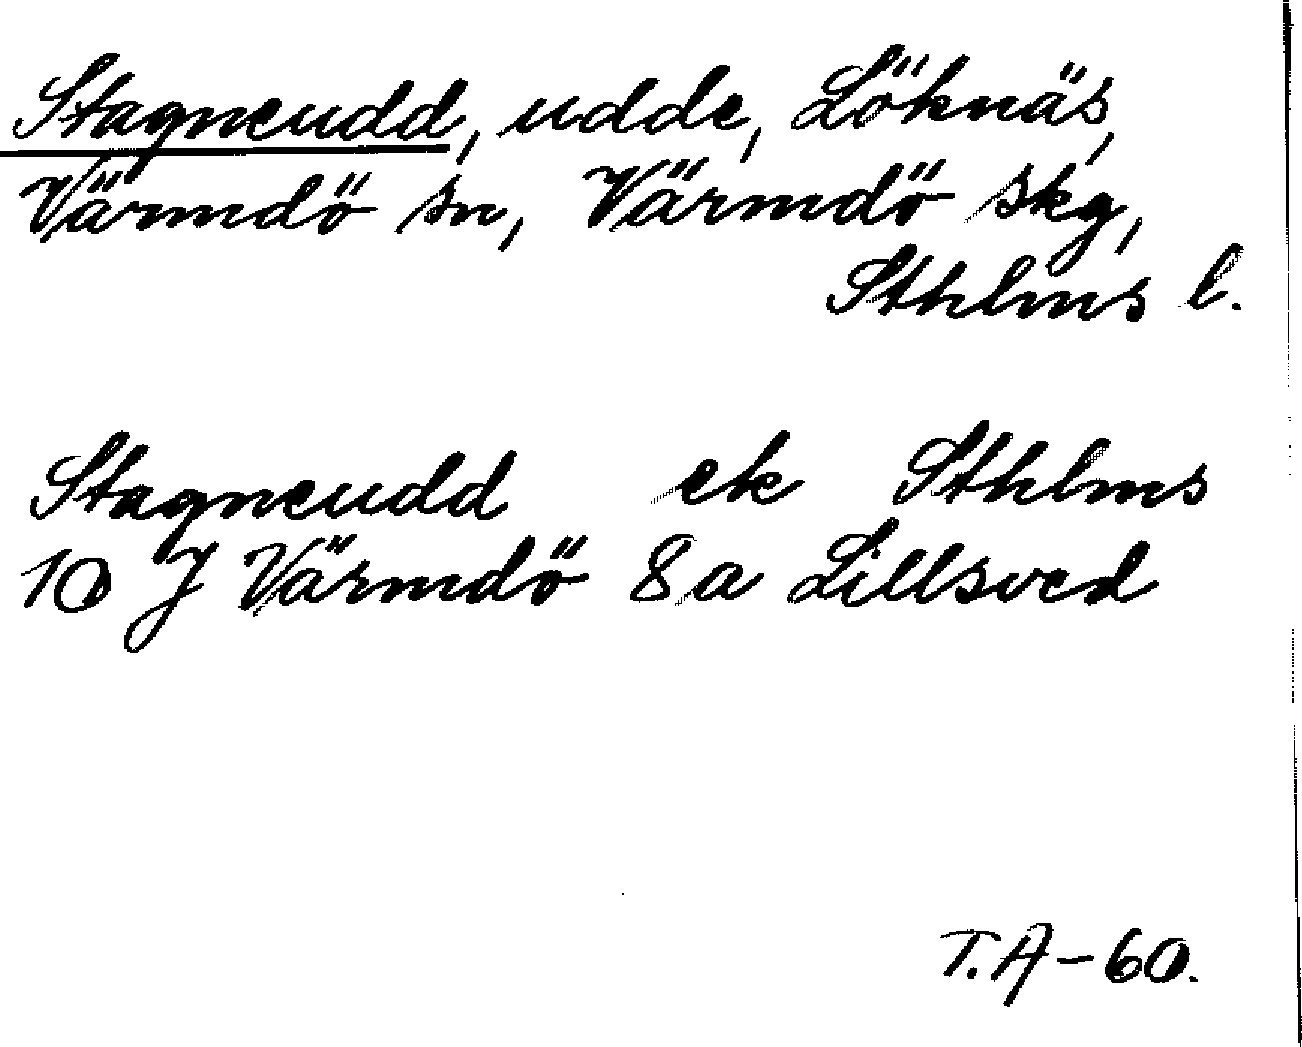 Stagneudd, udde, Löknäs,
Värmdö sn, Värmdö skg,
Sthlms l.
Stagneudd ek Sthlms
10 J Värmdö 8a Lillsved
T.A-60.